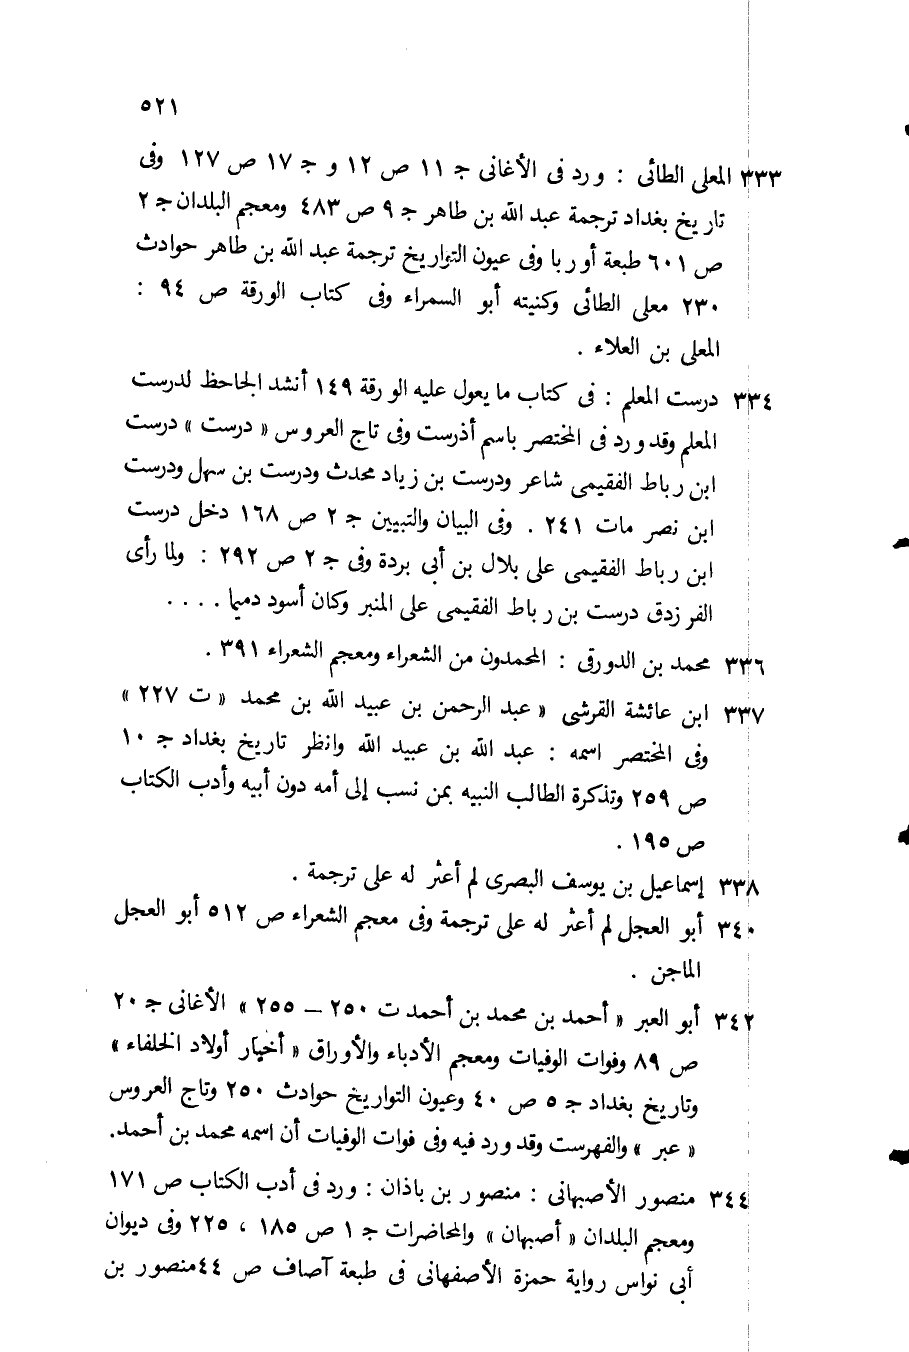 ٥٢١
٣٣٣ المعلى الطائى : ورد فى الأغانى جـ ١١ ص ١٢ و جـ ١٧ ص ١٢٧ وفى
تاريخ بغداد ترجمة عبد الله بن طاهر جـ ٩ ص ٤٨٣ ومعجم البلدان جـ ٢
ص ٦٠١ طبعة أوربا وفى عيون التواريخ ترجمة عبد الله بن طاهر حوادث
٢٣٠ معلى الطائى وكنيته أبو السمراء وفى كتاب الورقة ص ٩٤ :
المعلى بن العلاء .
٣٣٤ درست المعلم : فى كتاب ما يعول عليه الورقة ١٤٩ أنشد الجاحظ لدرست
المعلم وقد ورد فى المختصر باسم أذرست وفى تاج العروس « درست » درست
ابن رباط الفقيمى شاعر ودرست بن زياد محدث ودرست بن سهل ودرست
ابن نصر مات ٢٤١ . وفى البيان والتبيين جـ ٢ ص ١٦٨ دخل درست
ابن رباط الفقيمى على بلال بن أبى بردة وفى جـ ٢ ص ٢٩٢ : ولما رأى
الفرزدق درست بن رباط الفقيمى على المنبر وكان أسود دميما . . . .
٣٣٦ محمد بن الدورقى : المحمدون من الشعراء ومعجم الشعراء ٣٩١ .
٣٣٧ ابن عائشة القرشى « عبد الرحمن بن عبيد الله بن محمد « ت ٢٢٧ »
وفى المختصر اسمه : عبد الله بن عبيد الله وانظر تاريخ بغداد جـ ١٠
ص ٢٥٩ وتذكرة الطالب النبيه بمن نسب إلى أمه دون أبيه وأدب الكتاب
ص ١٩٥ .
٣٣٨ إسماعيل بن يوسف البصرى لم أعثر له على ترجمة .
٣٤٠ أبو العجل لم أعثر له على ترجمة وفى معجم الشعراء ص ٥١٢ أبو العجل
الماجن .
٣٤٢ أبو العبر « أحمد بن محمد بن أحمد ت ٢٥٠ – ٢٥٥ » الأغانى جـ ٢٠
ص ٨٩ وفوات الوفيات ومعجم الأدباء والأوراق « أخبار أولاد الخلفاء »
وتاريخ بغداد جـ ٥ ص ٤٠ وعيون التواريخ حوادث ٢٥٠ وتاج العروس
« عبر » والفهرست وقد ورد فيه وفى فوات الوفيات أن اسمه محمد بن أحمد.
٣٤٤ منصور الأصبهانى : منصور بن باذان : ورد فى أدب الكتاب ص ١٧١
ومعجم البلدان « أصبهان » والمحاضرات جـ ١ ص ١٨٥ ، ٢٢٥ وفى ديوان
أبى نواس رواية حمزة الأصفهانى فى طبعة آصاف ص ٤٤ منصور بن